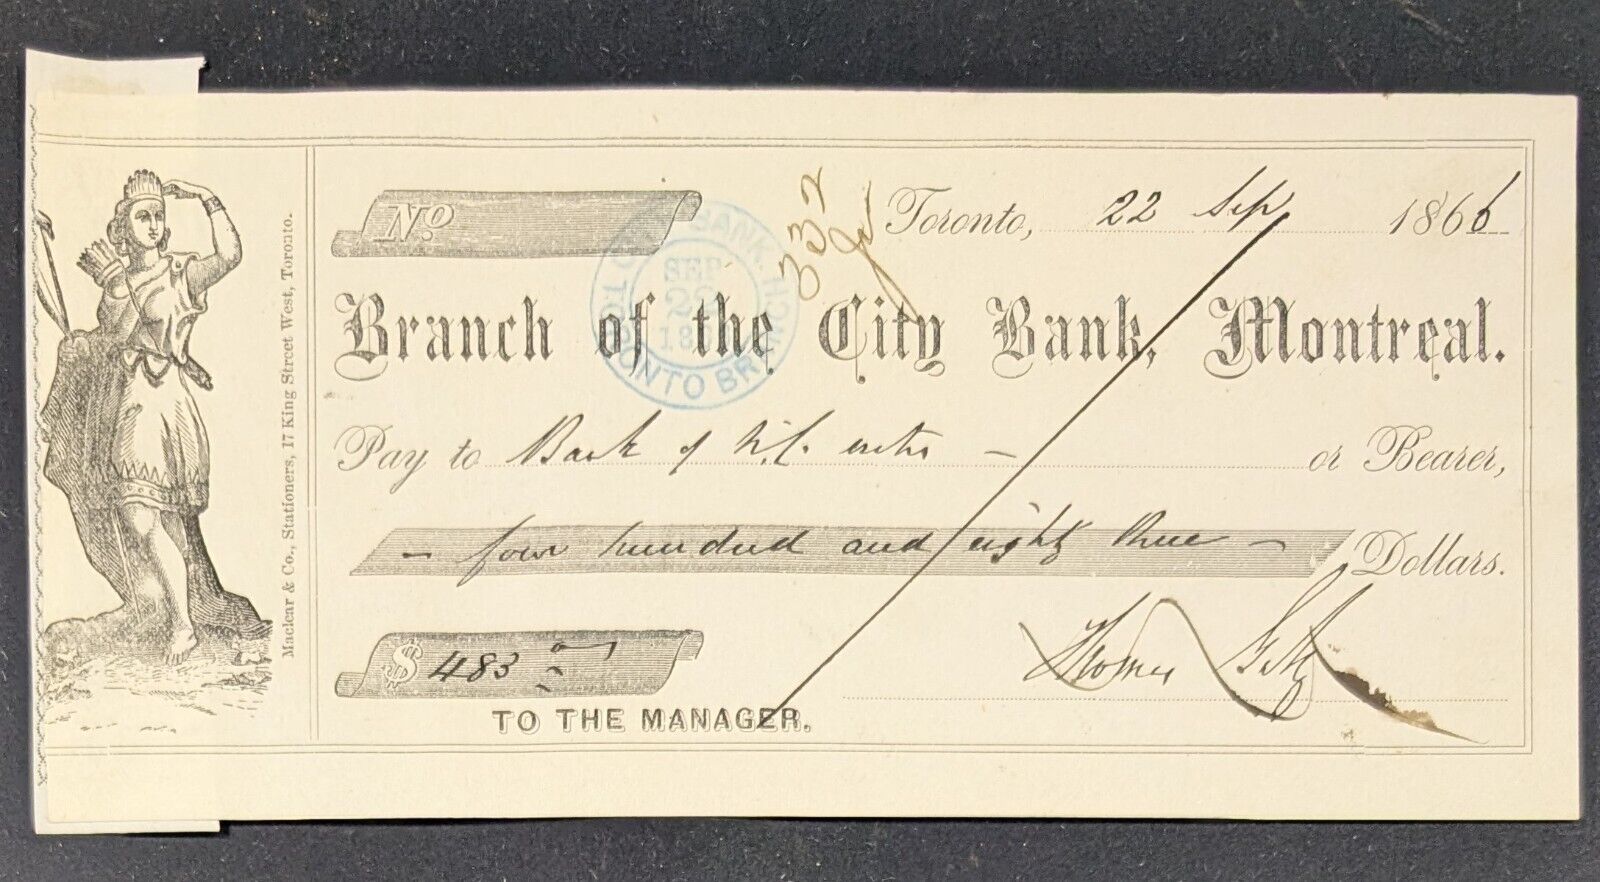 No.
332
Toronto, 22 Sep 1866
Branch of the City Bank, Montreal.
CITY BANK, MONTREAL
SEP
TORONTO BRANCH
Pay to Bank of U.C. or Bearer,
- four hundred and eighty three - Dollars.
$ 483
Thomas
TO THE MANAGER.
Maclear & Co., Stationers, 17 King Street West, Toronto.